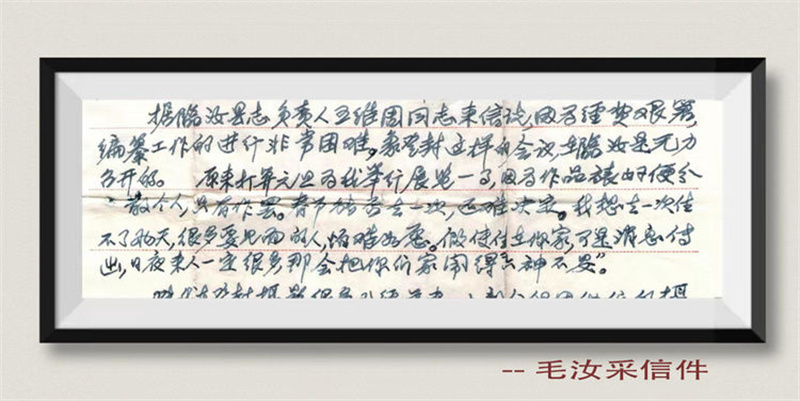 据临汝县志负责人王维国同志来信谈，因为经费艰窘，
编纂工作的进行非常困难。象登封这样的会议，在临汝是无力
召开的。 原来打算元旦为我举行展览一了，因为作品装的便
个人，只有作罢。春节能否去一次，还难决定。我想去一次住
不了幾天，很多要见面的人，怕难如愿。假使住在你家，可是消息传
出，日夜来人一定很多那会把你们家闹得六神不安”。
-- 毛汝采信件